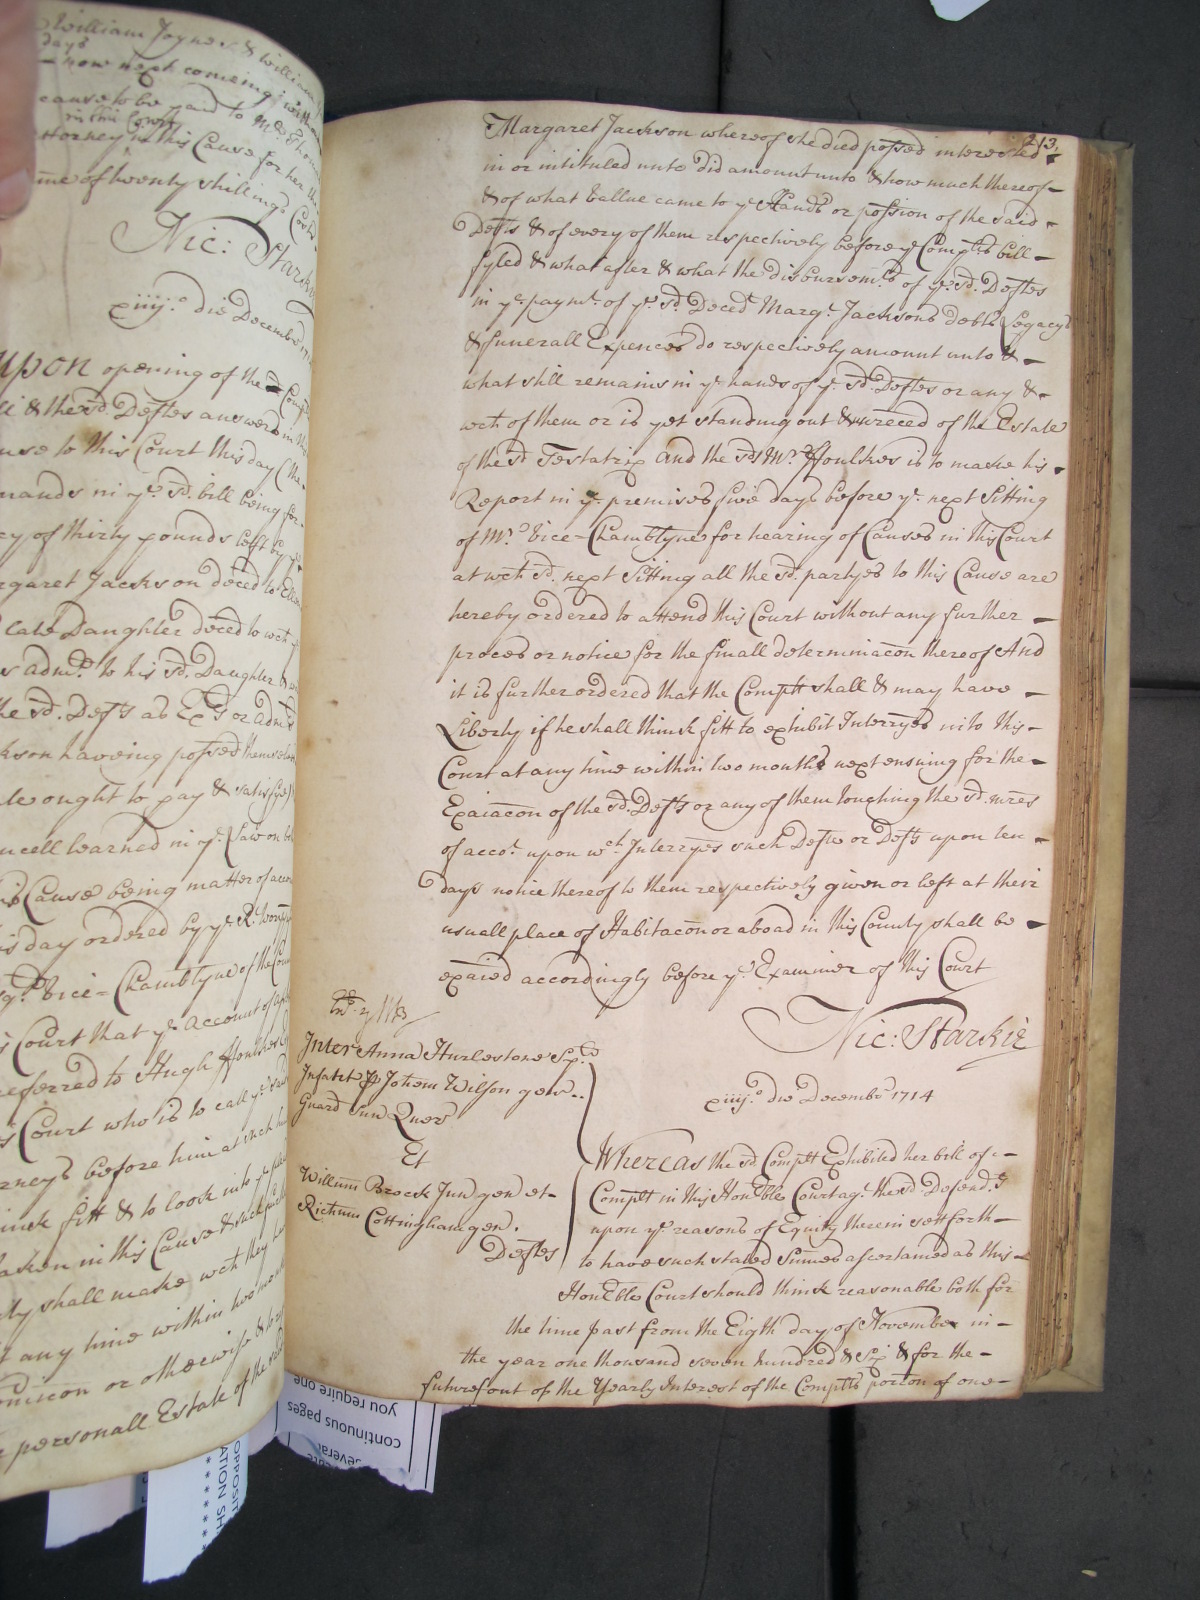 William Joynes & William
days
now next comeing without
cause to be paid to Mr Thom
in this Court
Attorney in this Cause for her the
sume of twenty shillings Costs
Nic: Starkie
xiiij.o die Decembr 1714
Upon opening of the Complts
bill & the sd. Deftes answers in this
Cause to this Court this day (the
demands in ye sd. bill being for
cy of thirty pounds left by ye
Margaret Jackson deced to Ellen
late Daughter deced to wch
as admr. to his sd. Daughter
the sd. Defts as Exrs or adm
Jackson haveing possed themselves
ought to pay & satisfye)
Councell learned in ye Law on both
this Cause being matter of accot
this day ordered by ye Rt. worpll
Esqr. Vice-Chamblyne of the County
this Court that ye account of
referred to Hugh Ffoulkes
this Court who is to call ye said
attorneys before him at such
think fitt & to look into ye
taken in this Cause & such
shall make wch they have
at any time within two months
or otherwise &
personall Estate of the said
213.
Margaret Jackson whereof she died possed interested
in or intituled unto did amount unto & how much thereof
& of what vallue came to ye Hands or possion of the said
Defts & of every of them respectively before ye Complts bill
fyled & what after & what the disbursemts of ye sd. Deftes
in ye paymt. of ye sd. Deced Margt. Jacksons debts Legacys
& funerall Expences do respectively amount unto &
what still remains in ye hands of ye sd. Deftes or any &
wch of them or is yet standing out & unreced of the Estate
of the sd Testatrix And the sd Mr. Ffoulkes is to make his
Report in ye premises five days before ye next Sitting
of Mr. Vice-Chamblyne for hearing of Causes in this Court
at wch sd. next Sitting all the sd. partyes to this Cause are
hereby ordered to attend this Court without any further
proces or notice for the finall determinacon thereof And
it is further ordered that the Complt shall & may have
Liberty if he shall think fitt to exhibit Interryes into this
Court at any time within two months next ensuing for the
Exaiacon of the sd. Defts or any of them touching the sd. mres
of accot. upon wch Interryes such Defte or Defts upon ten
days notice thereof to them respectively given or left at their
usuall place of Habitacon or aboad in this County shall be
exaied accordingly before ye Examiner of this Court
Nic: Starkie
Inter Anna Hurlestone Spr.
Infatt p Jotiem Wilson gen.
Guard sun Quer
Et
Willum Brock Jun gen et
Ricum Cottingham gen.
Deftes
xiiij.o die Decembr 1714
Whereas the sd Complt Exhibited her bill of
Complt in this HonEble Court agt. the sd. Defendts
upon ye reasons of Equity therein sett forth
to have such stated Summes ascertained as this
HonEble Court should think reasonable both for
the time past from the Eigth day of November in
the year one thousand seven hundred & Six & for the
future out of the Yearly Interest of the Complts porcon of one
OPPOSIT
ATION SH
several
continuous pages
you require one